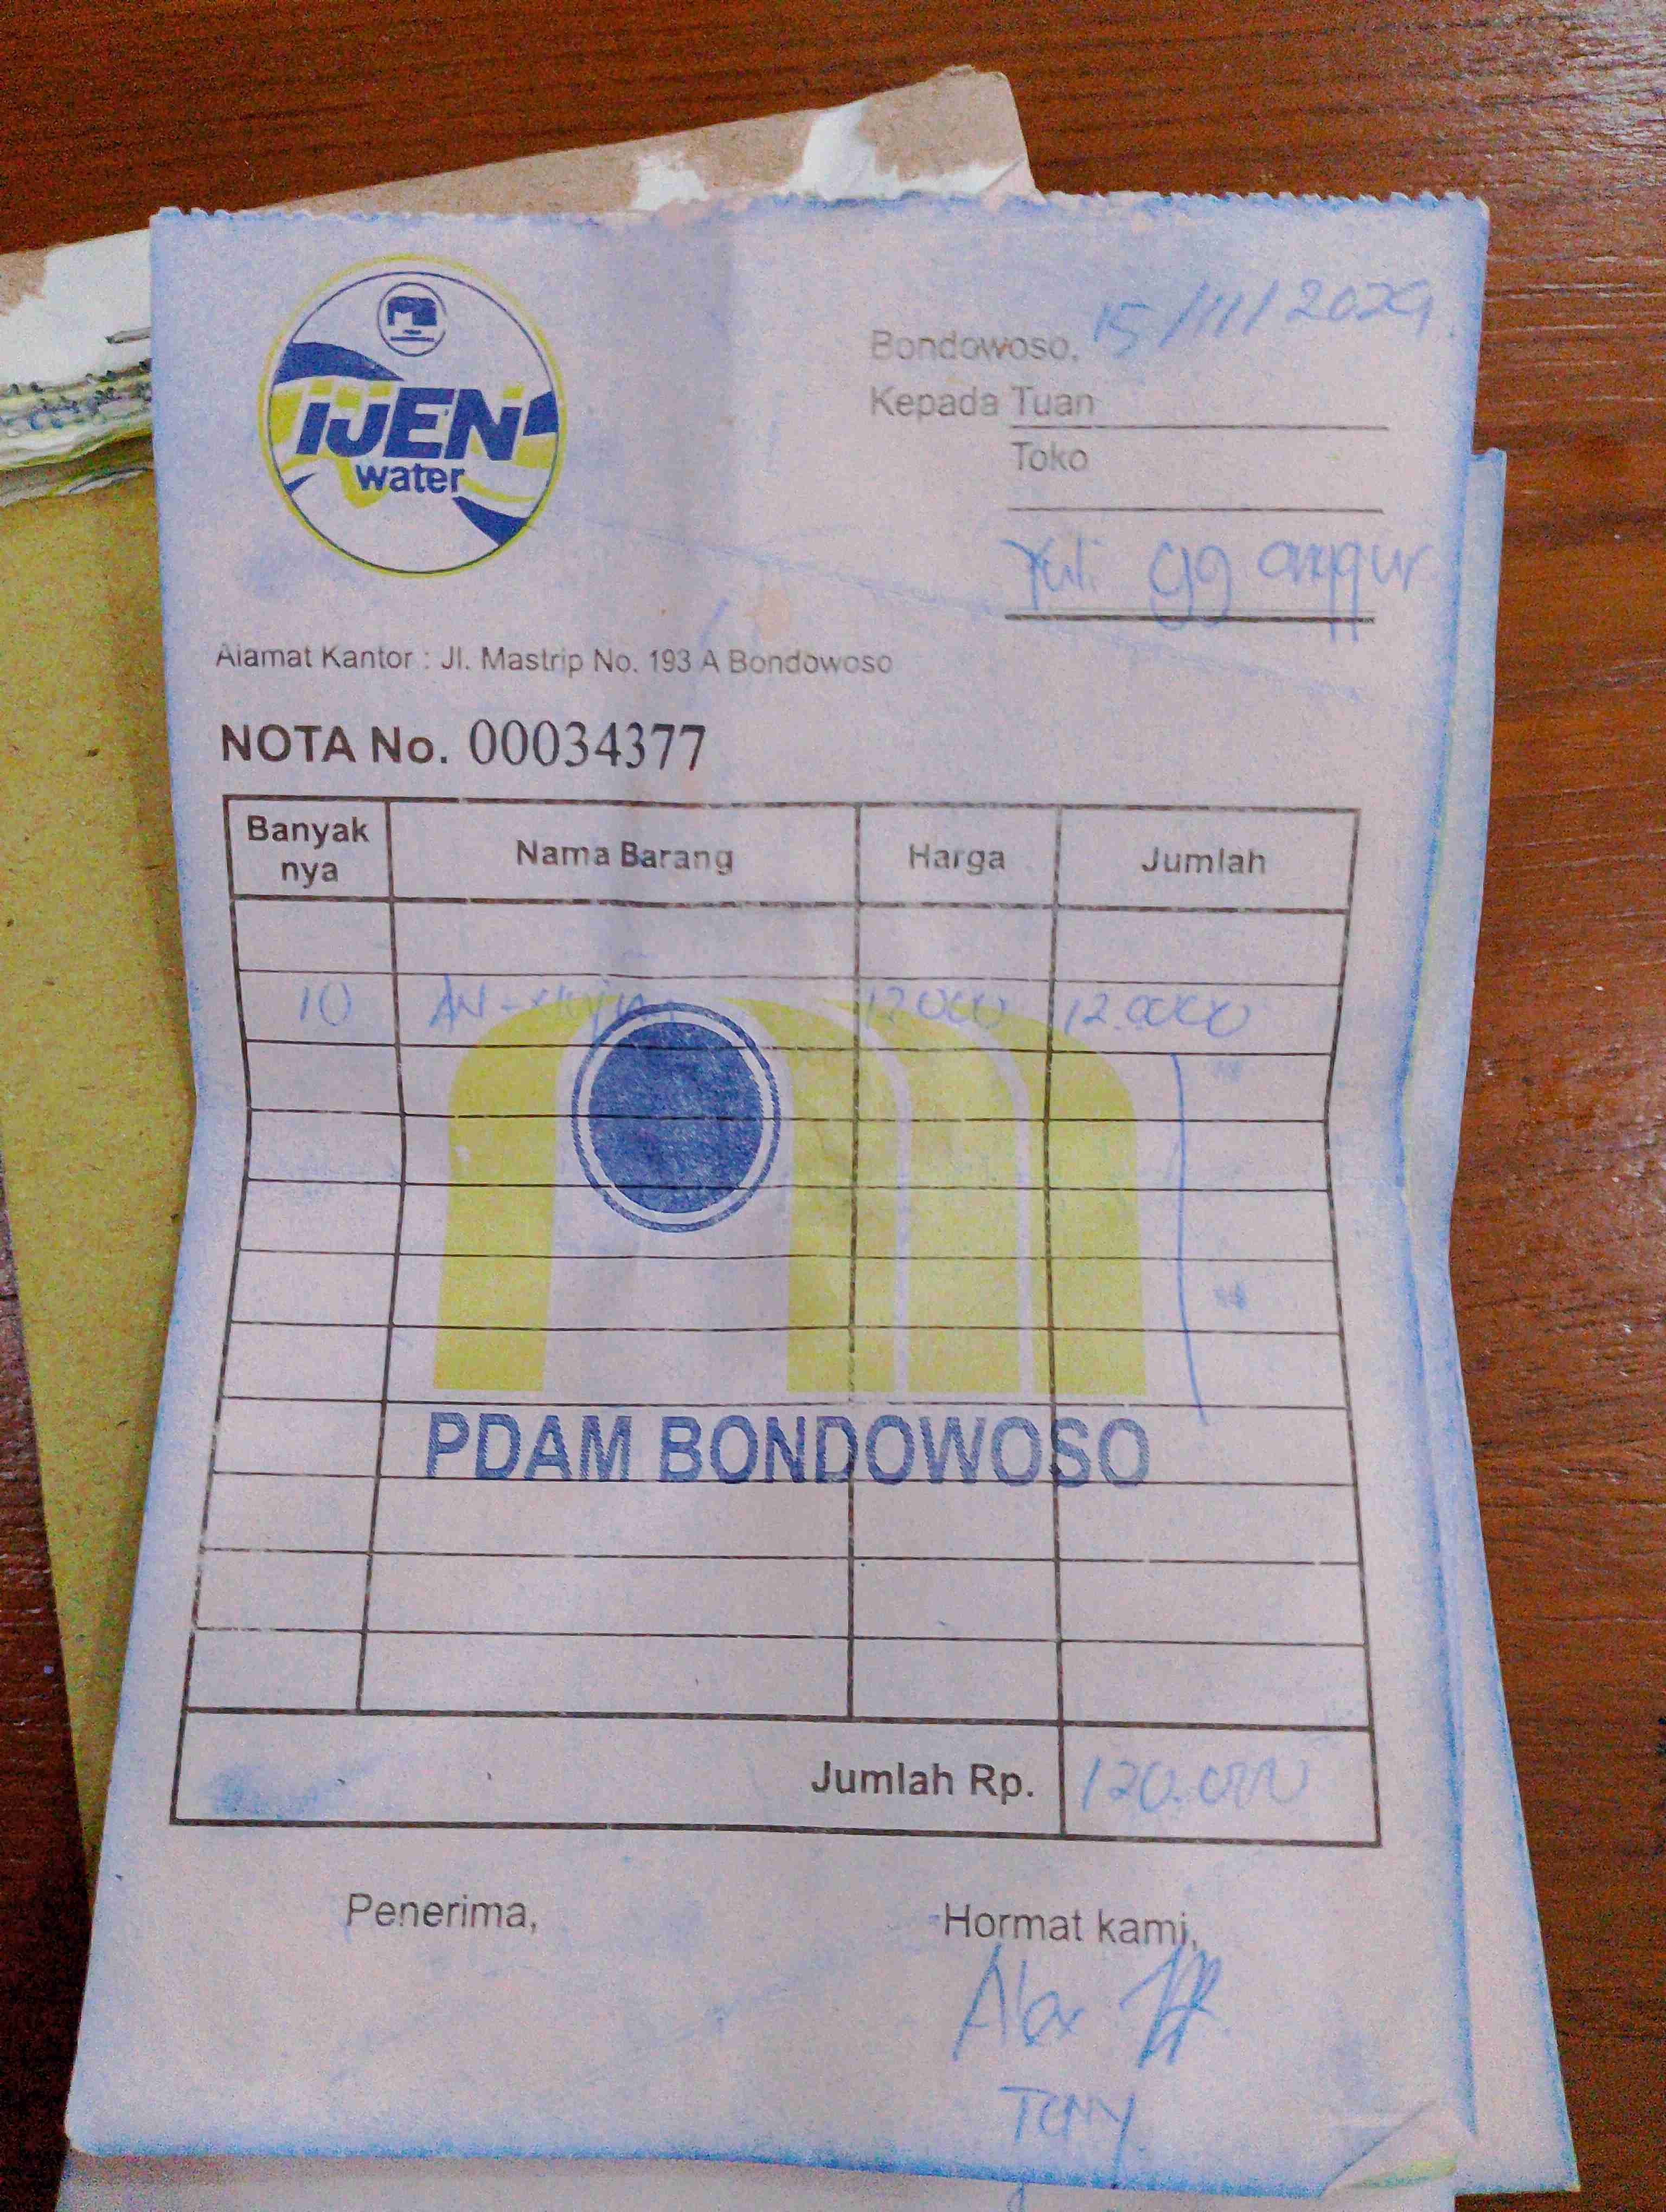 IJEN
water
Bondowoso, 15/11/2024
Kepada Tuan
Toko
Yuli gg anggur
Alamat Kantor : Jl. Mastrip No. 193 A Bondowoso
NOTA No. 00034377
Banyak nya Nama Barang Harga Jumlah
10 12000
PDAM BONDOWOSO
Jumlah Rp. 120.000
Penerima, Hormat kami,
Alex
Tony